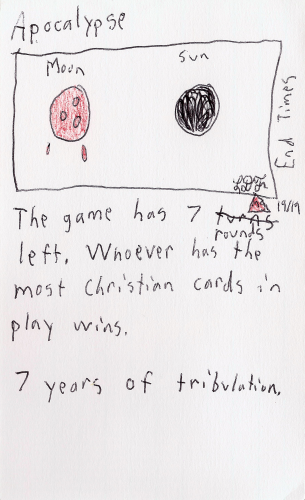 Apocalypse
Moon Sun
End Times
19/19
The game has 7 turns
rounds
left. Whoever has the
most Christian cards in
play wins.
7 years of tribulation.